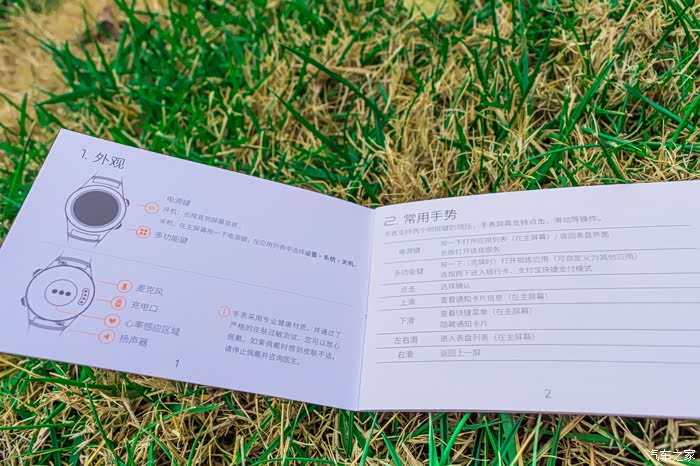 1. 外观
电源键
开机：长按直到屏幕亮亮；
关机：在主屏幕按一下电源键，在应用列表中选择设置-系统-关机。
多功能键
麦克风
充电口
心率感应区域
扬声器
手表采用专业健康材质，并通过了
严格的皮肤过敏测试，您可以放心
佩戴。如果佩戴时感到皮肤不适，
请停止佩戴并咨询医生。
1
2. 常用手势
手表支持两个侧按键的按压，手表屏幕支持点击、滑动等操作。
电源键
按一下打开应用列表（在主屏幕）/ 返回表盘界面
长按打开语音服务
多功能键
按一下（亮屏时）打开锻炼应用（可自定义为其他应用）
连按两下进入银行卡、支付宝快捷支付模式
点击 选择确认
上滑 查看通知卡片信息（在主屏幕）
下滑
查看快捷菜单（在主屏幕）
隐藏通知卡片
左右滑 进入表盘列表（在主屏幕）
右滑 返回上一屏
2
汽车之家